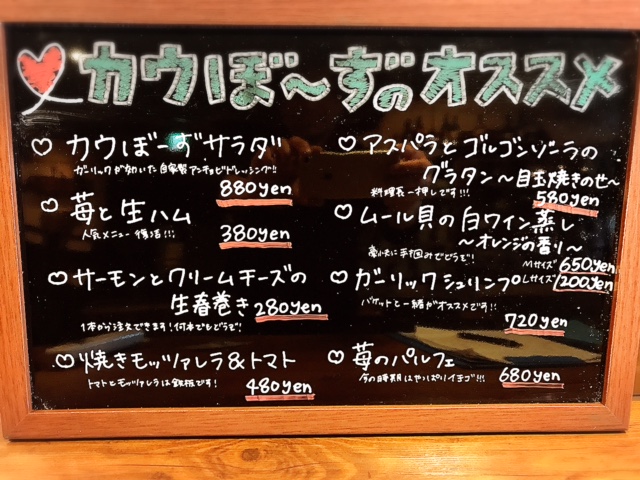 カウぼ〜ずのオススメ
カウぼーずサラダ
ガーリックが効いた自家製アンチョビドレッシング!!
880yen
苺と生ハム
人気メニュー復活!!!
380yen
サーモンとクリームチーズの
生春巻き 280yen
1本から注文できます!何本でもどうぞ!
焼きモッツァレラ&トマト
トマトとモッツァレラは鉄板です!
480yen
アスパラとゴルゴンゾーラの
グラタン〜目玉焼きのせ〜
料理長一押しです!!!
580yen
ムール貝の白ワイン蒸し
〜オレンジの香り〜
豪快に手掴みでどうぞ!
Mサイズ 650yen
Lサイズ 1200yen
ガーリックシュリンプ
バゲットと一緒がオススメです!!
720yen
苺のパルフェ
今の時期はやっぱりイチゴ!!!
680yen